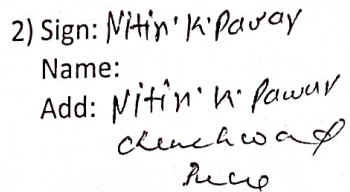 2) Sign: Nitin K Pawar
Name:
Add: Nitin K. Pawar
Chinchwad
Pune